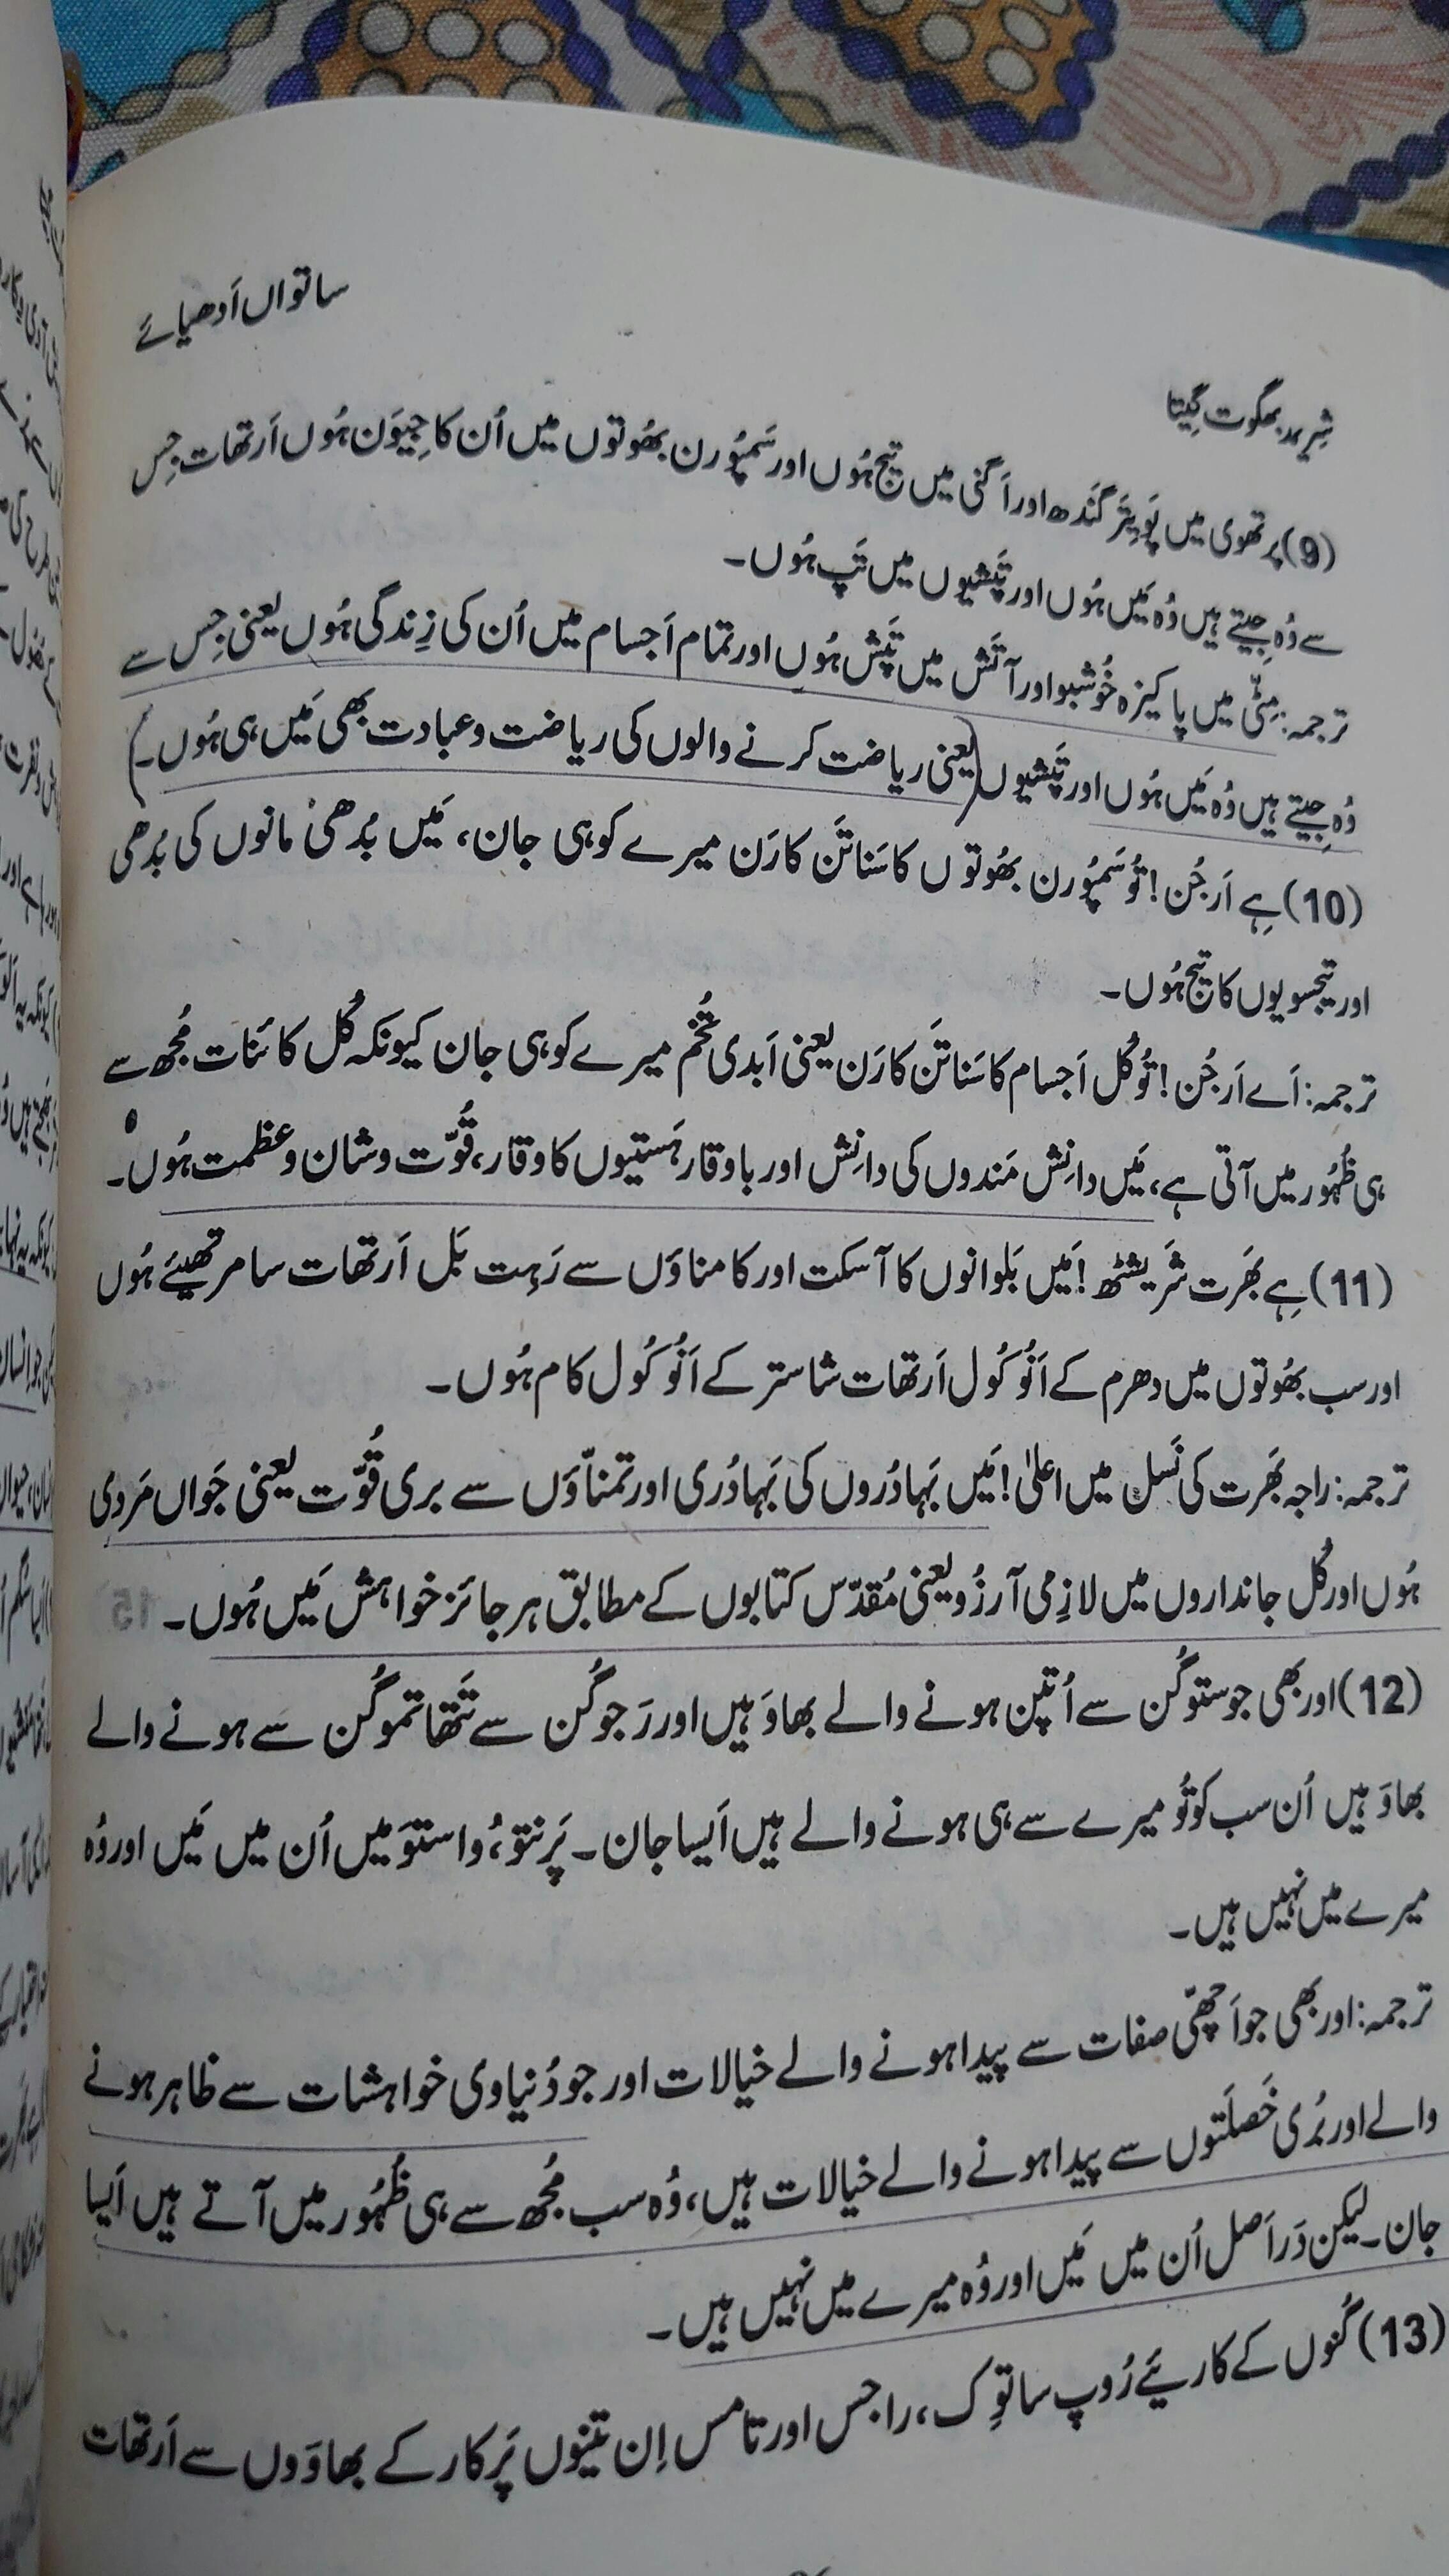 ساتواں اَدھیائے
شِریمد بھگوت گِیتا
(9) پرتھوی میں پَوِیتَر گَندھ اور اَگنی میں تیج ہُوں اور سَمپُورن بھُوتوں میں اُن کا جِیوَن ہُوں اَرتھات جِس
سے وُہ جِیتے ہیں وُہ مَیں ہُوں اور تَپَشیوں میں تَپ ہُوں۔
ترجمہ: مِٹّی میں پاکیزہ خُوشبو اور آتَش میں تَپَش ہُوں اور تمام اَجسام میں اُن کی زِندگی ہُوں یعنی جِس سے
وُہ جِیتے ہیں وُہ مَیں ہُوں اور تَپَشیوں (یعنی ریاضت کرنے والوں کی ریاضت و عبادت بھی مَیں ہی ہُوں۔)
(10) ہے اَرجُن! تُو سَمپُورن بھُوتوں کا سَناتَن کارَن میرے کو ہی جان، مَیں بُدھی مانوں کی بُدھی
اور تیجسویوں کا تیج ہُوں۔
ترجمہ: اَے اَرجُن! تُو کُل اَجسام کا سَناتَن کارَن یعنی اَبدی تُخم میرے کو ہی جان کیونکہ کُل کائنات مُجھ سے
ہی ظُہُور میں آتی ہے، مَیں دانِش مَندوں کی دانِش اور باوقار ہَستیوں کا وقار، قُوّت و شان و عظمت ہُوں۔
(11) ہے بھَرت شرَیشٹھ! مَیں بَلوانوں کا آسکت اور کامناؤں سے رَہِت بَل اَرتھات سامرتھیئے ہُوں
اور سب بھُوتوں میں دھرم کے اَنُوکُول اَرتھات شاستر کے اَنُوکُول کام ہُوں۔
ترجمہ: راجہ بھَرت کی نَسل میں اعلیٰ! مَیں بَہادُروں کی بَہادُری اور تمنّاؤں سے بری قُوّت یعنی جَواں مَردی
ہُوں اور کُل جانداروں میں لازِمی آرزُو یعنی مُقدّس کتابوں کے مطابق ہر جائز خواہش مَیں ہُوں۔
(12) اور بھی جو ستوگُن سے اُتپن ہونے والے بھاوَ ہیں اور رَجوگُن سے تَتھا تموگُن سے ہونے والے
بھاوَ ہیں اُن سب کو تُو میرے سے ہی ہونے والے ہیں اَیسا جان۔ پَرنتو، واستوَ میں اُن میں مَیں اور وُہ
میرے میں نہیں ہیں۔
ترجمہ: اور بھی جو اَچھّی صفات سے پیدا ہونے والے خیالات اور جو دُنیاوی خواہشات سے ظاہر ہونے
والے اور بُری خَصلَتوں سے پیدا ہونے والے خیالات ہیں، وُہ سب مُجھ سے ہی ظُہُور میں آتے ہیں اَیسا
جان۔ لیکن دَراَصل اُن میں مَیں اور وُہ میرے میں نہیں ہیں۔
(13) گُنوں کے کاریئے رُوپ ساتوِک، راجس اور تامس اِن تینوں پَرکار کے بھاوَوں سے اَرتھات